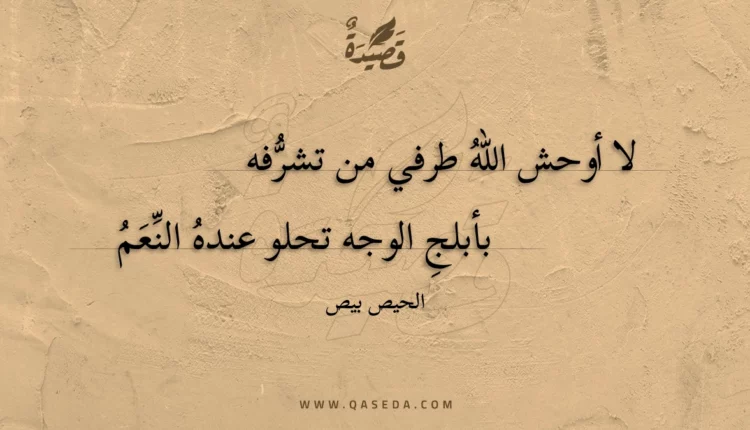 قَصِيدَةٌ
لا أوحش اللهُ طرفي من تشرُّفه
بأبلجِ الوجه تحلو عندهُ النِّعَمُ
الحيص بيص
WWW.QASEDA.COM